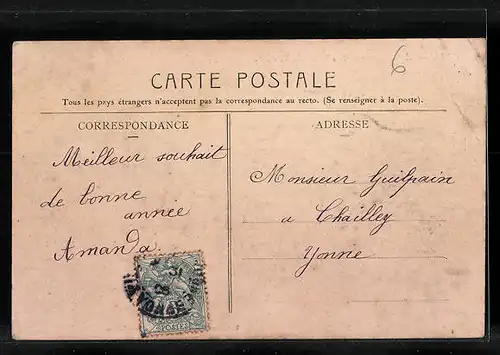 6
CARTE POSTALE
Tous les pays étrangers n'acceptent pas la correspondance au recto. (Se renseigner à la poste).
CORRESPONDANCE
Meilleur souhait
de bonne
année
Amanda
ADRESSE
Monsieur Guilpain
a Chailley
Yonne
POSTES